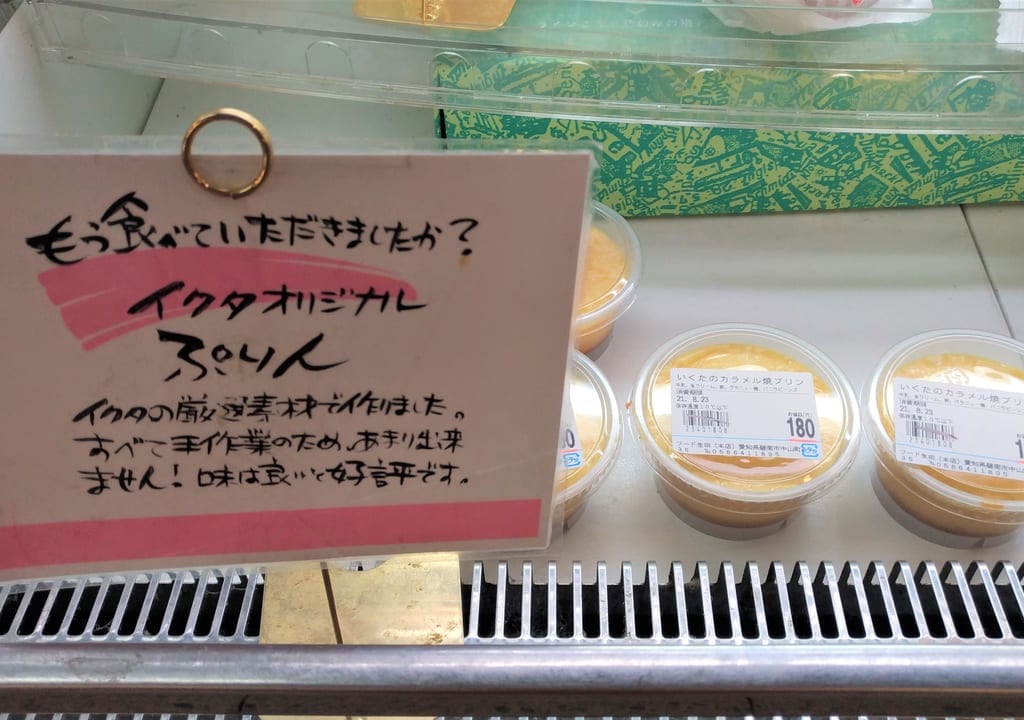 もう食べていただきましたか？
イクタオリジナル
ぷりん
イクタの厳選素材で作りました。
すべて手作業のため、あまり出来
ません！味は良いと好評です。
いくたのカラメル焼プリン
消費期限
21. 8.23
保存温度10℃以下
180
フード生田（本店）愛知県碧南市中山町
℡0566411895
いくたのカラメル焼プリ
消費期限
21. 8.23
保存温度10℃以下
フード生田（本店）愛知県碧南市中山
℡0566411895